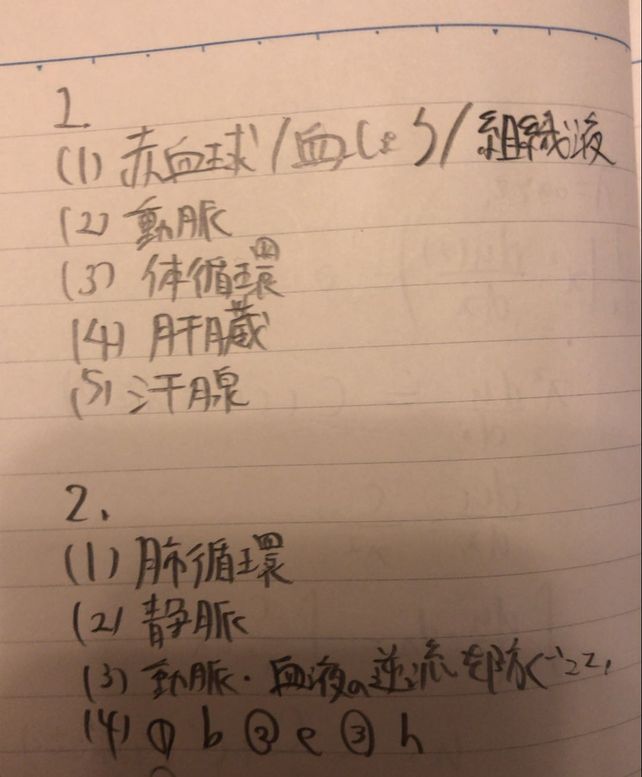 1.
(1) 赤血球/血しょう/組織液
(2) 動脈
(3) 体循環
(4) 肝臓
(5) 汗腺
2.
(1) 肺循環
(2) 静脈
(3) 動脈・血液の逆流を防ぐこと,
(4) ① b ② e ③ h